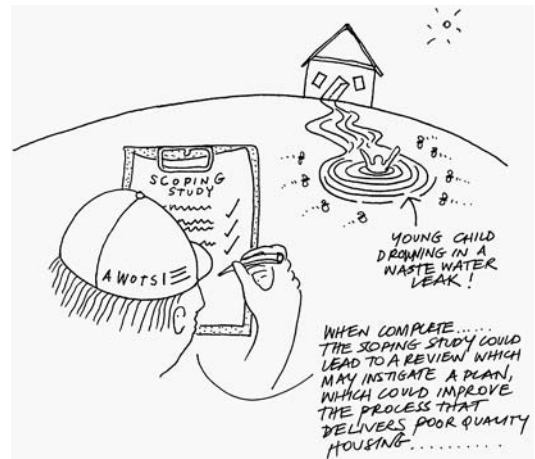 SCOPING
STUDY
AWOTSI
YOUNG CHILD
DROWNING IN A
WASTE WATER
LEAK!
WHEN COMPLETE......
THE SCOPING STUDY COULD
LEAD TO A REVIEW WHICH
MAY INSTIGATE A PLAN,
WHICH COULD IMPROVE
THE PROCESS THAT
DELIVERS POOR QUALITY
HOUSING..........